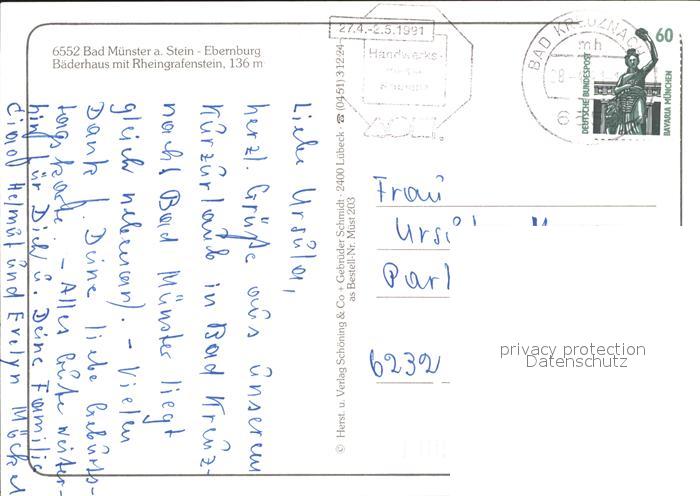 6552 Bad Münster a. Stein - Ebernburg
Bäderhaus mit Rheingrafenstein, 136 m
27.4.-2.5.1991
Handwerks-
BAD KREUZNACH
mh
6
60
DEUTSCHE BUNDESPOST
BAVARIA MÜNCHEN
Liebe Ursula,
herzl. Grüße aus unserem
Kurzurlaub in Bad Kreuz-
nach (Bad Münster liegt
gleich nebenan). - Vielen
Dank f. Deine liebe Geburts-
tagskarte. - Alles Gute weiter-
hin für Dich u. Deine Familie
Helmut und Evelyn
© Herst. u. Verlag Schöning & Co + Gebrüder Schmidt · 2400 Lübeck · ☎ (0451) 31224
as Bestell-Nr. Müst 203
Frau
6232
privacy protection
Datenschutz